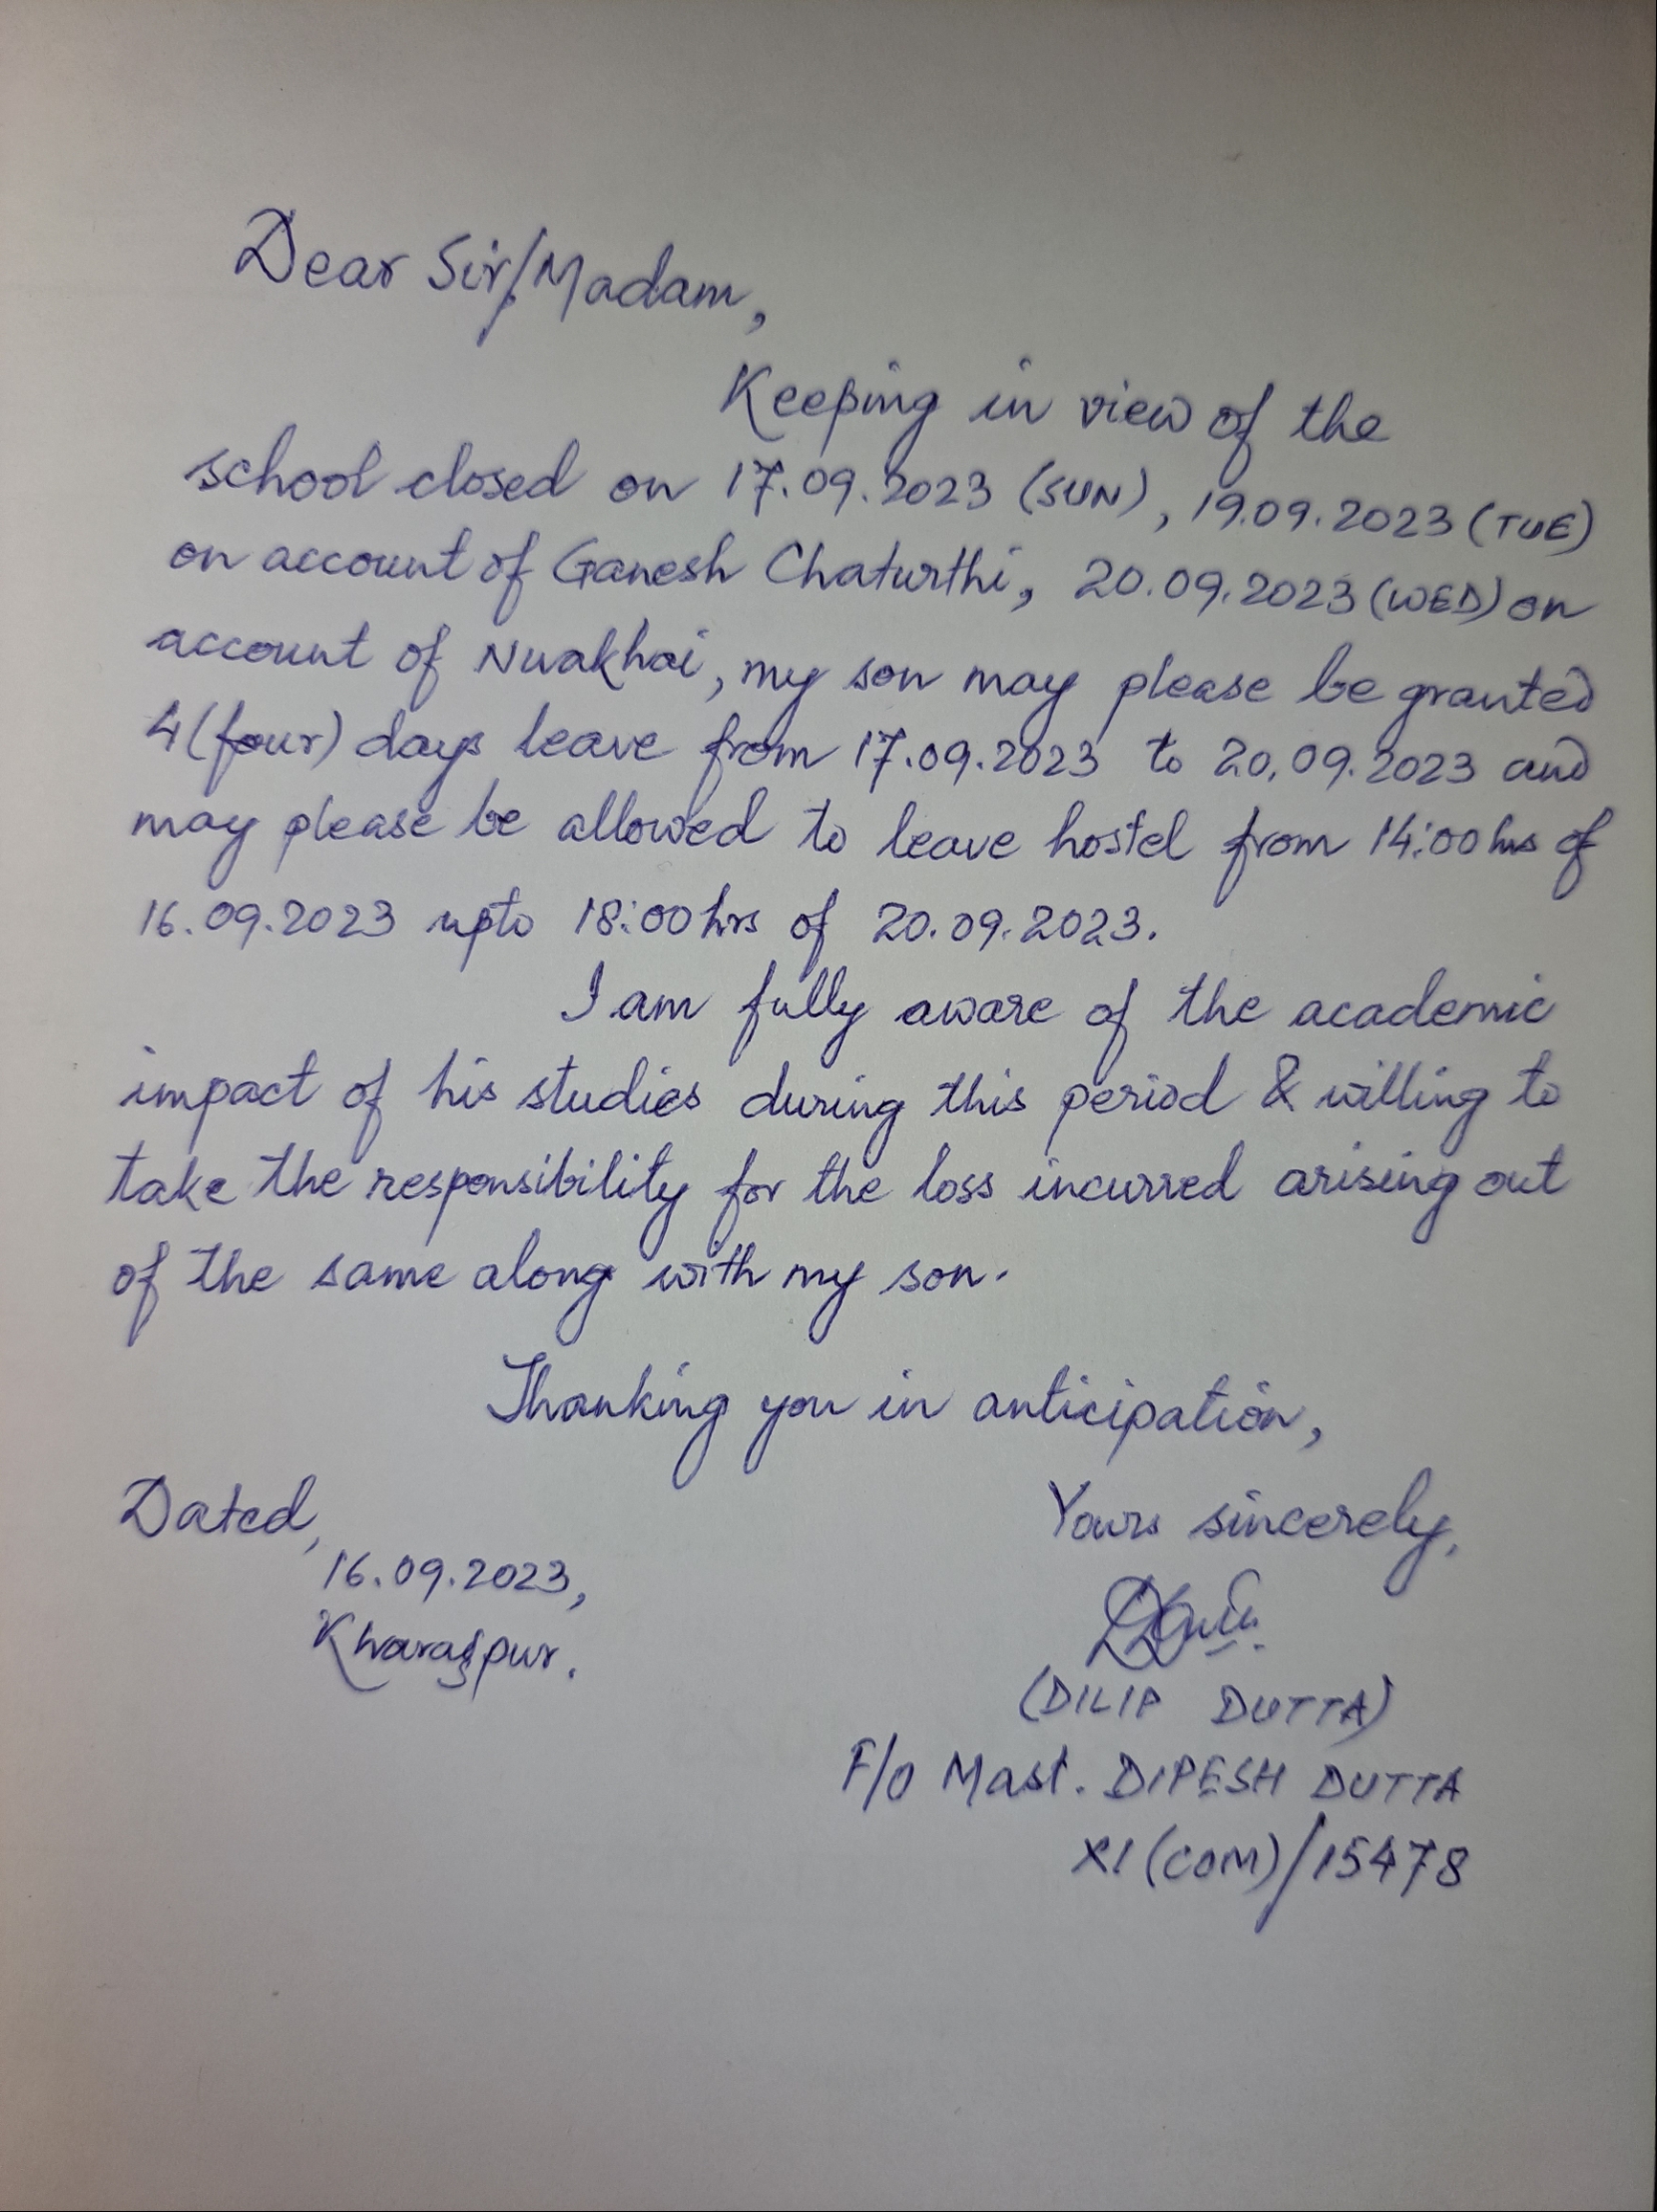 Dear Sir/Madam,
Keeping in view of the
school closed on 17.09.2023 (SUN), 19.09.2023 (TUE)
on account of Ganesh Chaturthi, 20.09.2023 (WED) on
account of Nuakhai, my son may please be granted
4 (four) days leave from 17.09.2023 to 20.09.2023 and
may please be allowed to leave hostel from 14:00 hrs of
16.09.2023 upto 18:00 hrs of 20.09.2023.
I am fully aware of the academic
impact of his studies during this period & willing to
take the responsibility for the loss incurred arising out
of the same along with my son.
Thanking you in anticipation,
Dated,
16.09.2023,
Kharagpur.
Yours sincerely,
(DILIP DUTTA)
F/o Mast. DIPESH DUTTA
XI (COM)/15478